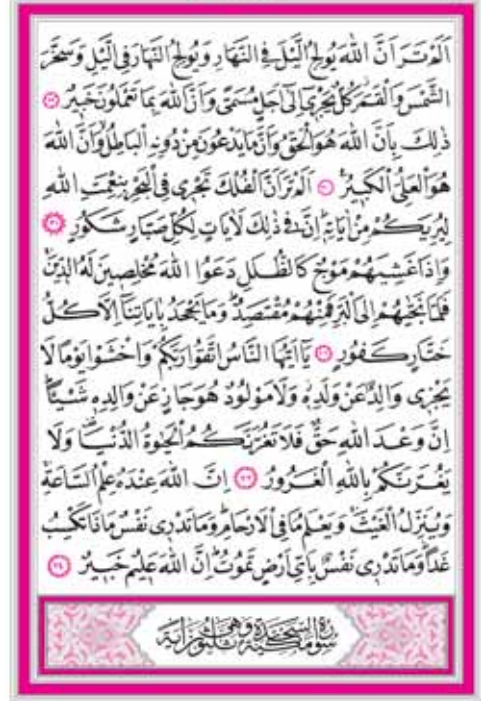 اَلَمْ تَرَ اَنَّ اللّٰهَ يُولِجُ الَّيْلَ فِى النَّهَارِ وَيُولِجُ النَّهَارَ فِى الَّيْلِ وَسَخَّرَ
الشَّمْسَ وَالْقَمَرَ كُلٌّ يَجْرٖٓى اِلٰٓى اَجَلٍ مُسَمًّى وَاَنَّ اللّٰهَ بِمَا تَعْمَلُونَ خَبٖيرٌ ﴿٢٩﴾
ذٰلِكَ بِاَنَّ اللّٰهَ هُوَ الْحَقُّ وَاَنَّ مَا يَدْعُونَ مِنْ دُونِهِ الْبَاطِلُ وَاَنَّ اللّٰهَ
هُوَ الْعَلِىُّ الْكَبٖيرُ ﴿٣٠﴾ اَلَمْ تَرَ اَنَّ الْفُلْكَ تَجْرٖى فِى الْبَحْرِ بِنِعْمَتِ اللّٰهِ
لِيُرِيَكُمْ مِنْ اٰيَاتِهٖ اِنَّ فٖى ذٰلِكَ لَاٰيَاتٍ لِكُلِّ صَبَّارٍ شَكُورٍ ﴿٣١﴾
وَاِذَا غَشِيَهُمْ مَوْجٌ كَالظُّلَلِ دَعَوُا اللّٰهَ مُخْلِصٖينَ لَهُ الدّٖينَ
فَلَمَّا نَجّٰيهُمْ اِلَى الْبَرِّ فَمِنْهُمْ مُقْتَصِدٌ وَمَا يَجْحَدُ بِاٰيَاتِنَٓا اِلَّا كُلُّ
خَتَّارٍ كَفُورٍ ﴿٣٢﴾ يَٓا اَيُّهَا النَّاسُ اتَّقُوا رَبَّكُمْ وَاخْشَوْا يَوْمًا لَا
يَجْزٖى وَالِدٌ عَنْ وَلَدِهٖ وَلَا مَوْلُودٌ هُوَ جَازٍ عَنْ وَالِدِهٖ شَيْـًٔا
اِنَّ وَعْدَ اللّٰهِ حَقٌّ فَلَا تَغُرَّنَّكُمُ الْحَيٰوةُ الدُّنْيَا وَلَا
يَغُرَّنَّكُمْ بِاللّٰهِ الْغَرُورُ ﴿٣٣﴾ اِنَّ اللّٰهَ عِنْدَهُ عِلْمُ السَّاعَةِ
وَيُنَزِّلُ الْغَيْثَ وَيَعْلَمُ مَا فِى الْاَرْحَامِ وَمَا تَدْرٖى نَفْسٌ مَاذَا تَكْسِبُ
غَدًا وَمَا تَدْرٖى نَفْسٌ بِاَىِّ اَرْضٍ تَمُوتُ اِنَّ اللّٰهَ عَلٖيمٌ خَبٖيرٌ ﴿٣٤﴾
سُورَةُ السَّجْدَةِ مَكِّيَّةٌ وَهِىَ ثَلٰثُونَ اٰيَةً